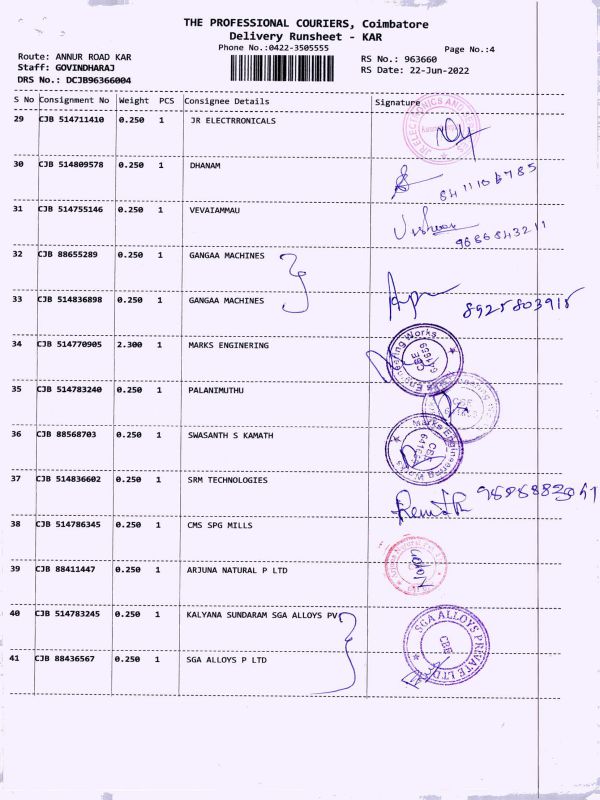 THE PROFESSIONAL COURIERS, Coimbatore
Delivery Runsheet - KAR
Phone No.:0422-3505555
Page No.:4
Route: ANNUR ROAD KAR
RS No.: 963660
Staff: GOVINDHARAJ
RS Date: 22-Jun-2022
DRS No.: DCJB96366004
S No Consignment No Weight PCS Consignee Details Signature
29 CJB 514711410 0.250 1 JR ELECTRRONICALS
30 CJB 514809578 0.250 1 DHANAM
31 CJB 514755146 0.250 1 VEVAIAMMAU
9686843211
32 CJB 88655289 0.250 1 GANGAA MACHINES
33 CJB 514836898 0.250 1 GANGAA MACHINES
8925803915
34 CJB 514770905 2.300 1 MARKS ENGINERING
35 CJB 514783240 0.250 1 PALANIMUTHU
36 CJB 88568703 0.250 1 SWASANTH S KAMATH
37 CJB 514836602 0.250 1 SRM TECHNOLOGIES
38 CJB 514786345 0.250 1 CMS SPG MILLS
39 CJB 88411447 0.250 1 ARJUNA NATURAL P LTD
40 CJB 514783245 0.250 1 KALYANA SUNDARAM SGA ALLOYS PV
SGA ALLOYS PRIVATE LTD
CBE
41 CJB 88436567 0.250 1 SGA ALLOYS P LTD